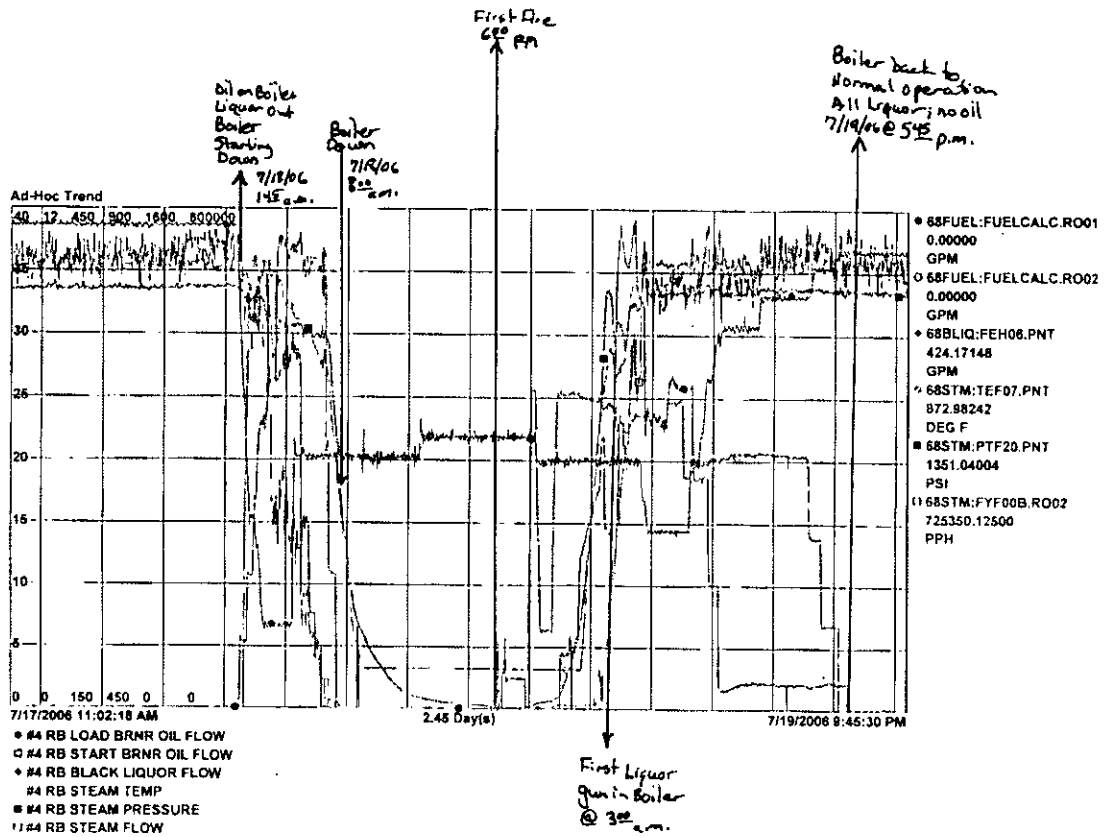 First Fire
6:00 PM
Boiler back to
Normal operation
All Liquor; no oil
7/19/06 @ 5:45 p.m.
Oil on Boiler
Liquor Out
Boiler
Starting
Down
7/18/06
1:45 a.m.
Boiler
Down
7/18/06
8:00 a.m.
Ad-Hoc Trend
40 12 450 900 1600 800000
35
30
25
20
15
10
5
0 0 150 450 0 0
7/17/2006 11:02:18 AM
2.45 Day(s)
7/19/2006 9:45:30 PM
68FUEL:FUELCALC.RO01
0.00000
GPM
68FUEL:FUELCALC.RO02
0.00000
GPM
68BLIQ:FEH06.PNT
424.17148
GPM
68STM:TEF07.PNT
872.98242
DEG F
68STM:PTF20.PNT
1351.04004
PSI
68STM:FYF00B.RO02
725350.12500
PPH
#4 RB LOAD BRNR OIL FLOW
#4 RB START BRNR OIL FLOW
#4 RB BLACK LIQUOR FLOW
#4 RB STEAM TEMP
#4 RB STEAM PRESSURE
#4 RB STEAM FLOW
First Liquor
gun in Boiler
@ 3:00 a.m.